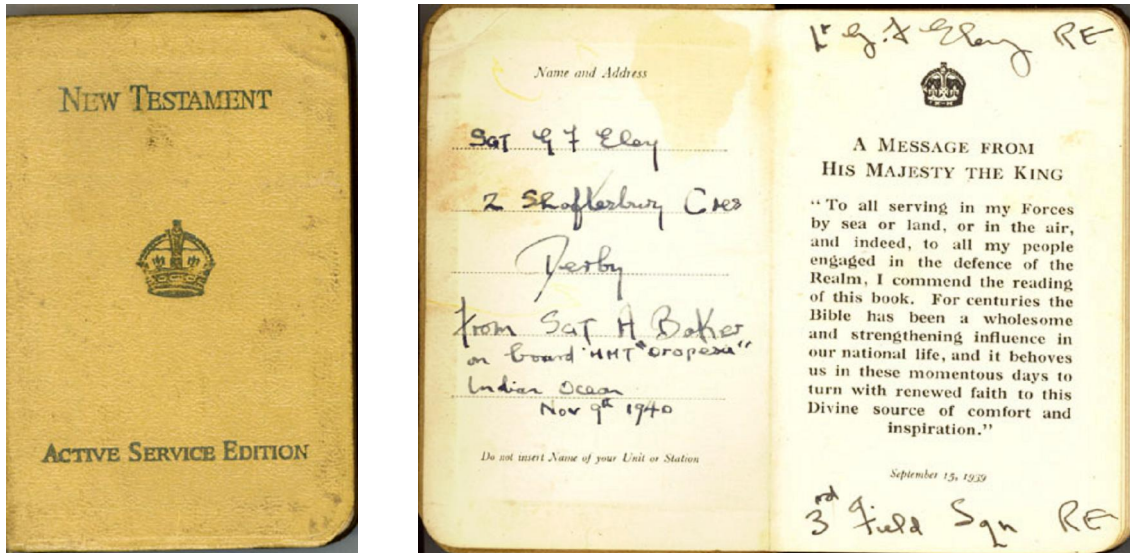 NEW TESTAMENT
ACTIVE SERVICE EDITION
Name and Address
Sgt G F Eley
2 Shaftesbury Cres
Derby
from Sgt A Baker
on board HMT "Oropesa"
Indian Ocean
Nov 9th 1940
Do not insert Name of your Unit or Station
Lt G. F Eley RE
A MESSAGE FROM
HIS MAJESTY THE KING
"To all serving in my Forces
by sea or land, or in the air,
and indeed, to all my people
engaged in the defence of the
Realm, I commend the reading
of this book. For centuries the
Bible has been a wholesome
and strengthening influence in
our national life, and it behoves
us in these momentous days to
turn with renewed faith to this
Divine source of comfort and
inspiration."
September 15, 1939
3rd Field Sqn RE